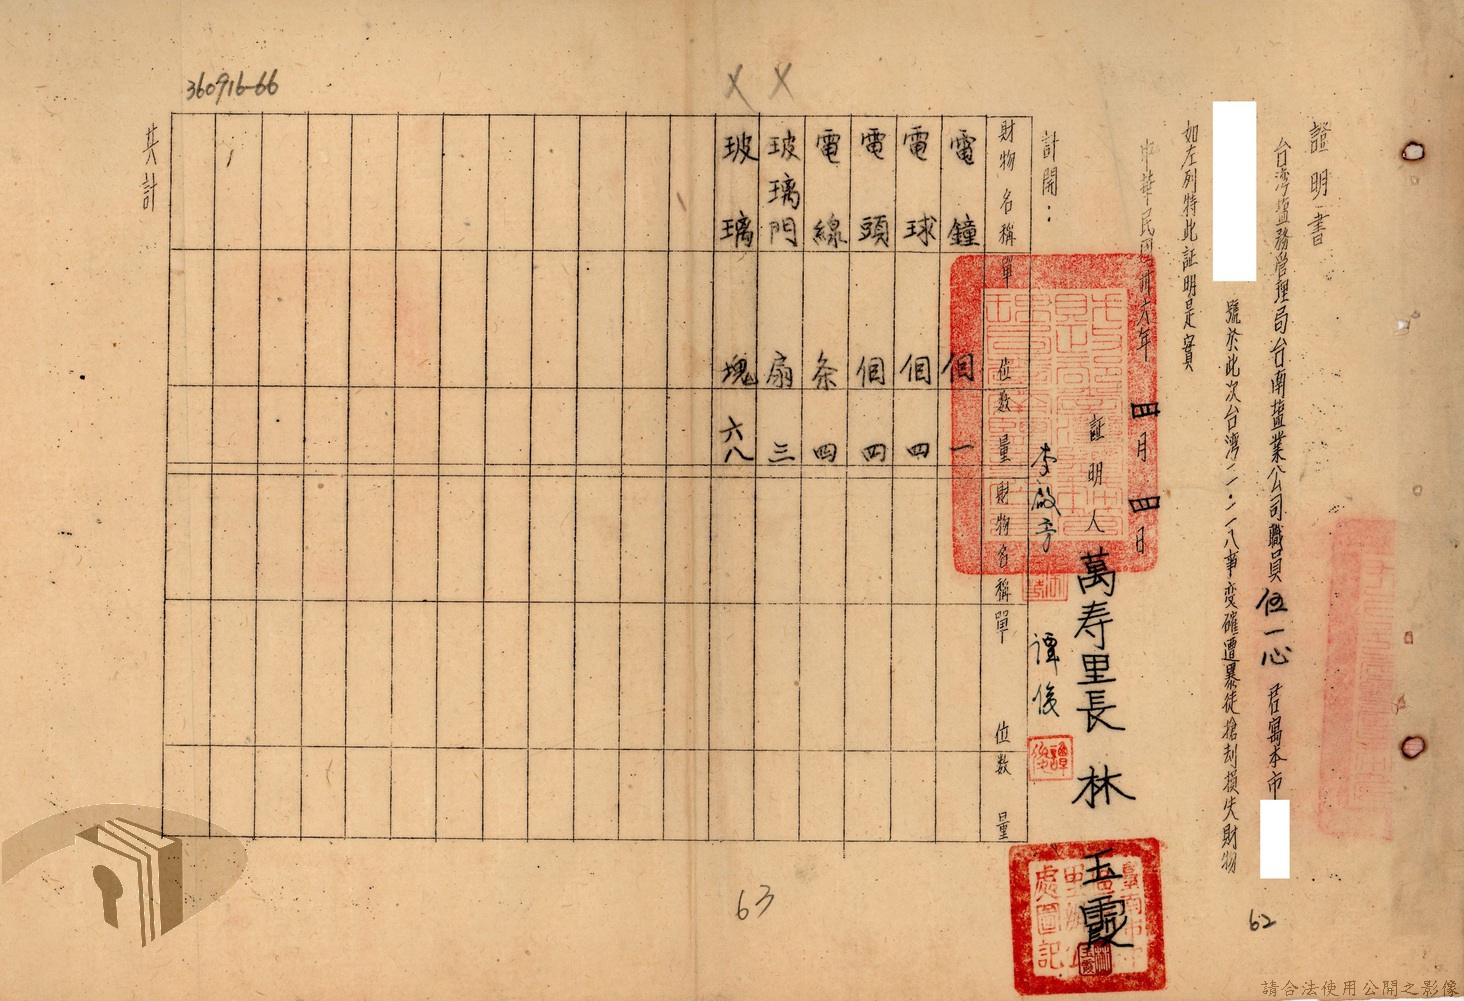 證明書
台湾塩務管理局台南塩業公司職員伍一心居寓本市
號於此次台湾二·二八事変確遭暴徒搶刦損失財物
如左列特此証明是實
中華民國卅六年四月四日
証明人 萬寿里長 林玉霞
李啟予
譚俊
譚俊
計開：
財物名稱 單位 数量 財物名稱 單位 数量
電鐘 個 一
電球 個 四
電頭 個 四
電線 条 四
玻璃門 扇 三
玻璃 塊 六八
共計
360916-66
63
62
請合法使用公開之影像